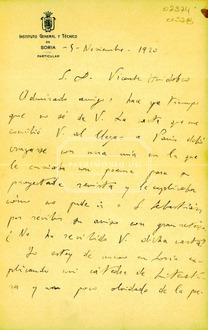 INSTITUTO GENERAL Y TÉCNICO
DE
SORIA
PARTICULAR
-5-Noviembre-1920
S. D. Vicente Huidobro
Admirado amigo: hace ya tiempo
que no sé de V. La carta que me
escribió V. al llegar a París debió
cruzarse con una mía en la que
le enviaba un poema para su
proyectada revista y le explicaba
cómo no pude ir a S. Sebastián
por recibir su aviso con gran retraso
¿No ha recibido V. dicha carta?
Yo estoy de nuevo en Soria ex-
plicando mi cátedra de Litera-
tura y un poco olvidado de la